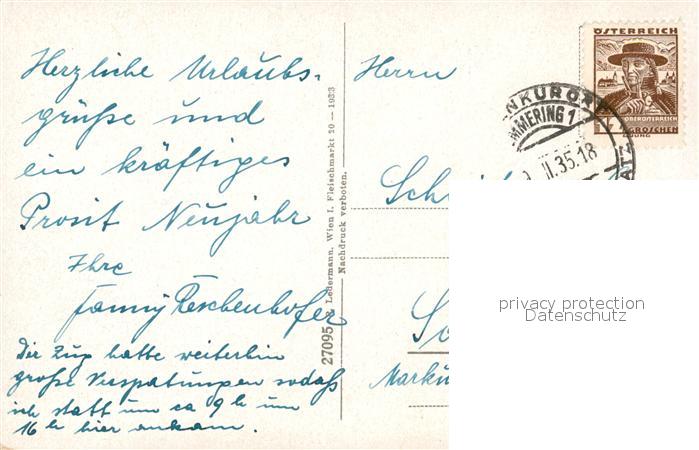 Herzliche Urlaubs-
grüße und
ein kräftiges
Prosit Neujahr
Ihre
Fanny Reschenhofer
Die Zug hatte weiterhin
große Verspätungen sodaß
ich statt um ca 9 h um
16 h hier ankam.
27095 Ledermann, Wien I, Fleischmarkt 20 — 1933
Nachdruck verboten.
Herrn
Sch
So
Marku
ÖSTERREICH
OBERÖSTERREICH
GROSCHEN
NKURORT
MMERING 1
II.35.18
privacy protection
Datenschutz